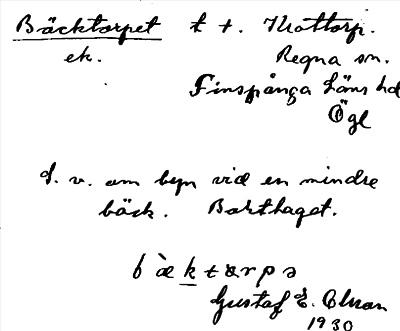 Bäcktorpet t t. Thottorp.
ek. Regna sn.
Finspånga läns hd
Ögl
S. v. om byn vid en mindre
bäck. Borttaget.
bæ̀ktɔrpə
Gustaf E. Olsson
1930